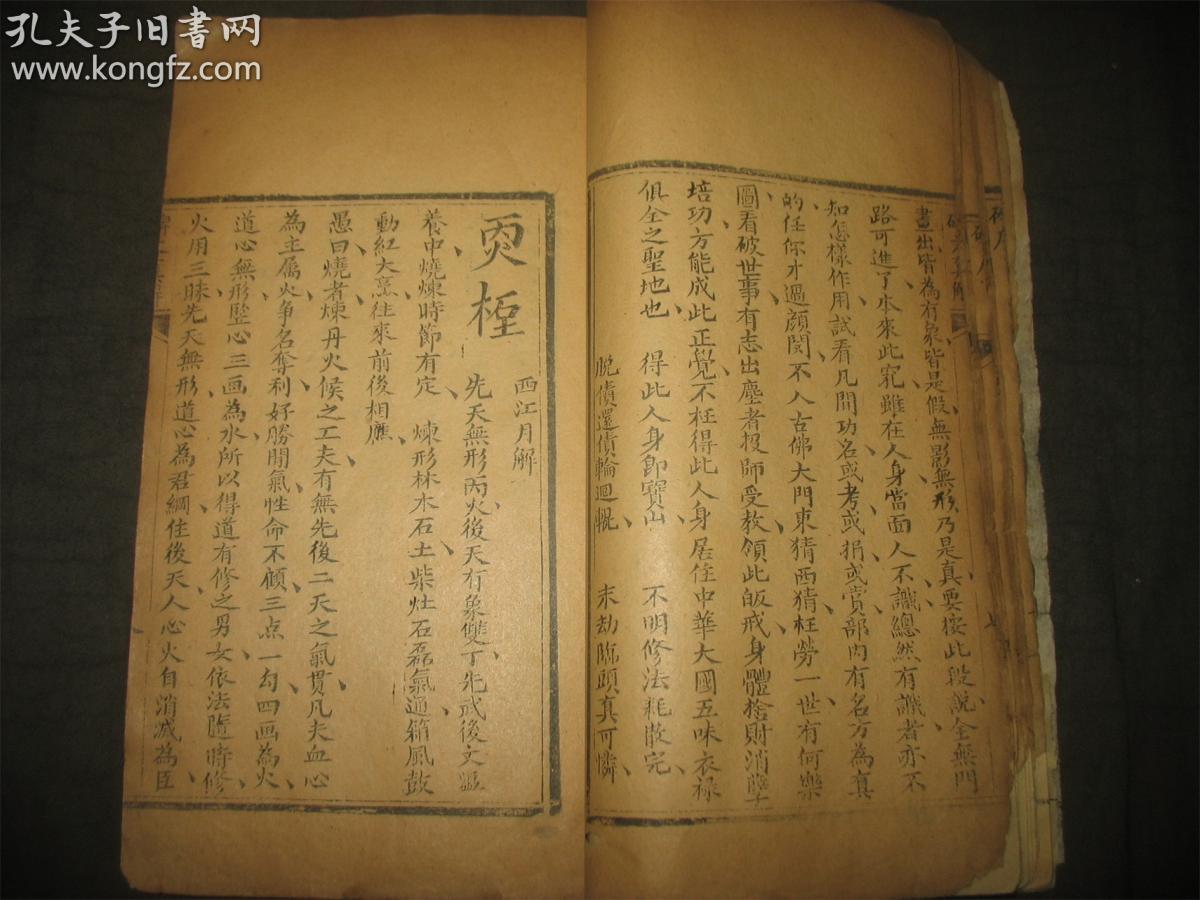 孔夫子旧书网
www.kongfz.com
畫出皆為有象皆是假無影無形乃是真要按此段說全無門
路可進了本來此竅雖在人身當面人不識總然有識者亦不
知怎樣作用試看凡間功名或考或捐或賞部內有名方為真
的任你才過顏閔不入古佛大門東猜西猜枉勞一世有何樂
圖看破世事有志出塵者投師受教領此皈戒身體捨財消孽
培功方能成此正覺不枉得此人身居住中華大國五味衣祿
俱全之聖地也 得此人身即寶山 不明修法耗散完
脫債還債輪迴輥 末劫臨頭真可憐
西江月解
先天無形丙火後天有象雙丁先武後文溫
養中燒煉時節有定 煉形林木石土柴灶石磊氣通箱風鼓
動紅大烹往來前後相應
愚曰燒者煉丹火候之工夫有無先後二天之氣貫凡夫血心
為主屬火爭名奪利好勝閗氣性命不顧三点一勾四画為火
道心無形監心三画為水所以得道有修之男女依法隨時修
火用三昧先天無形道心為君綱住後天人心火自消滅為臣